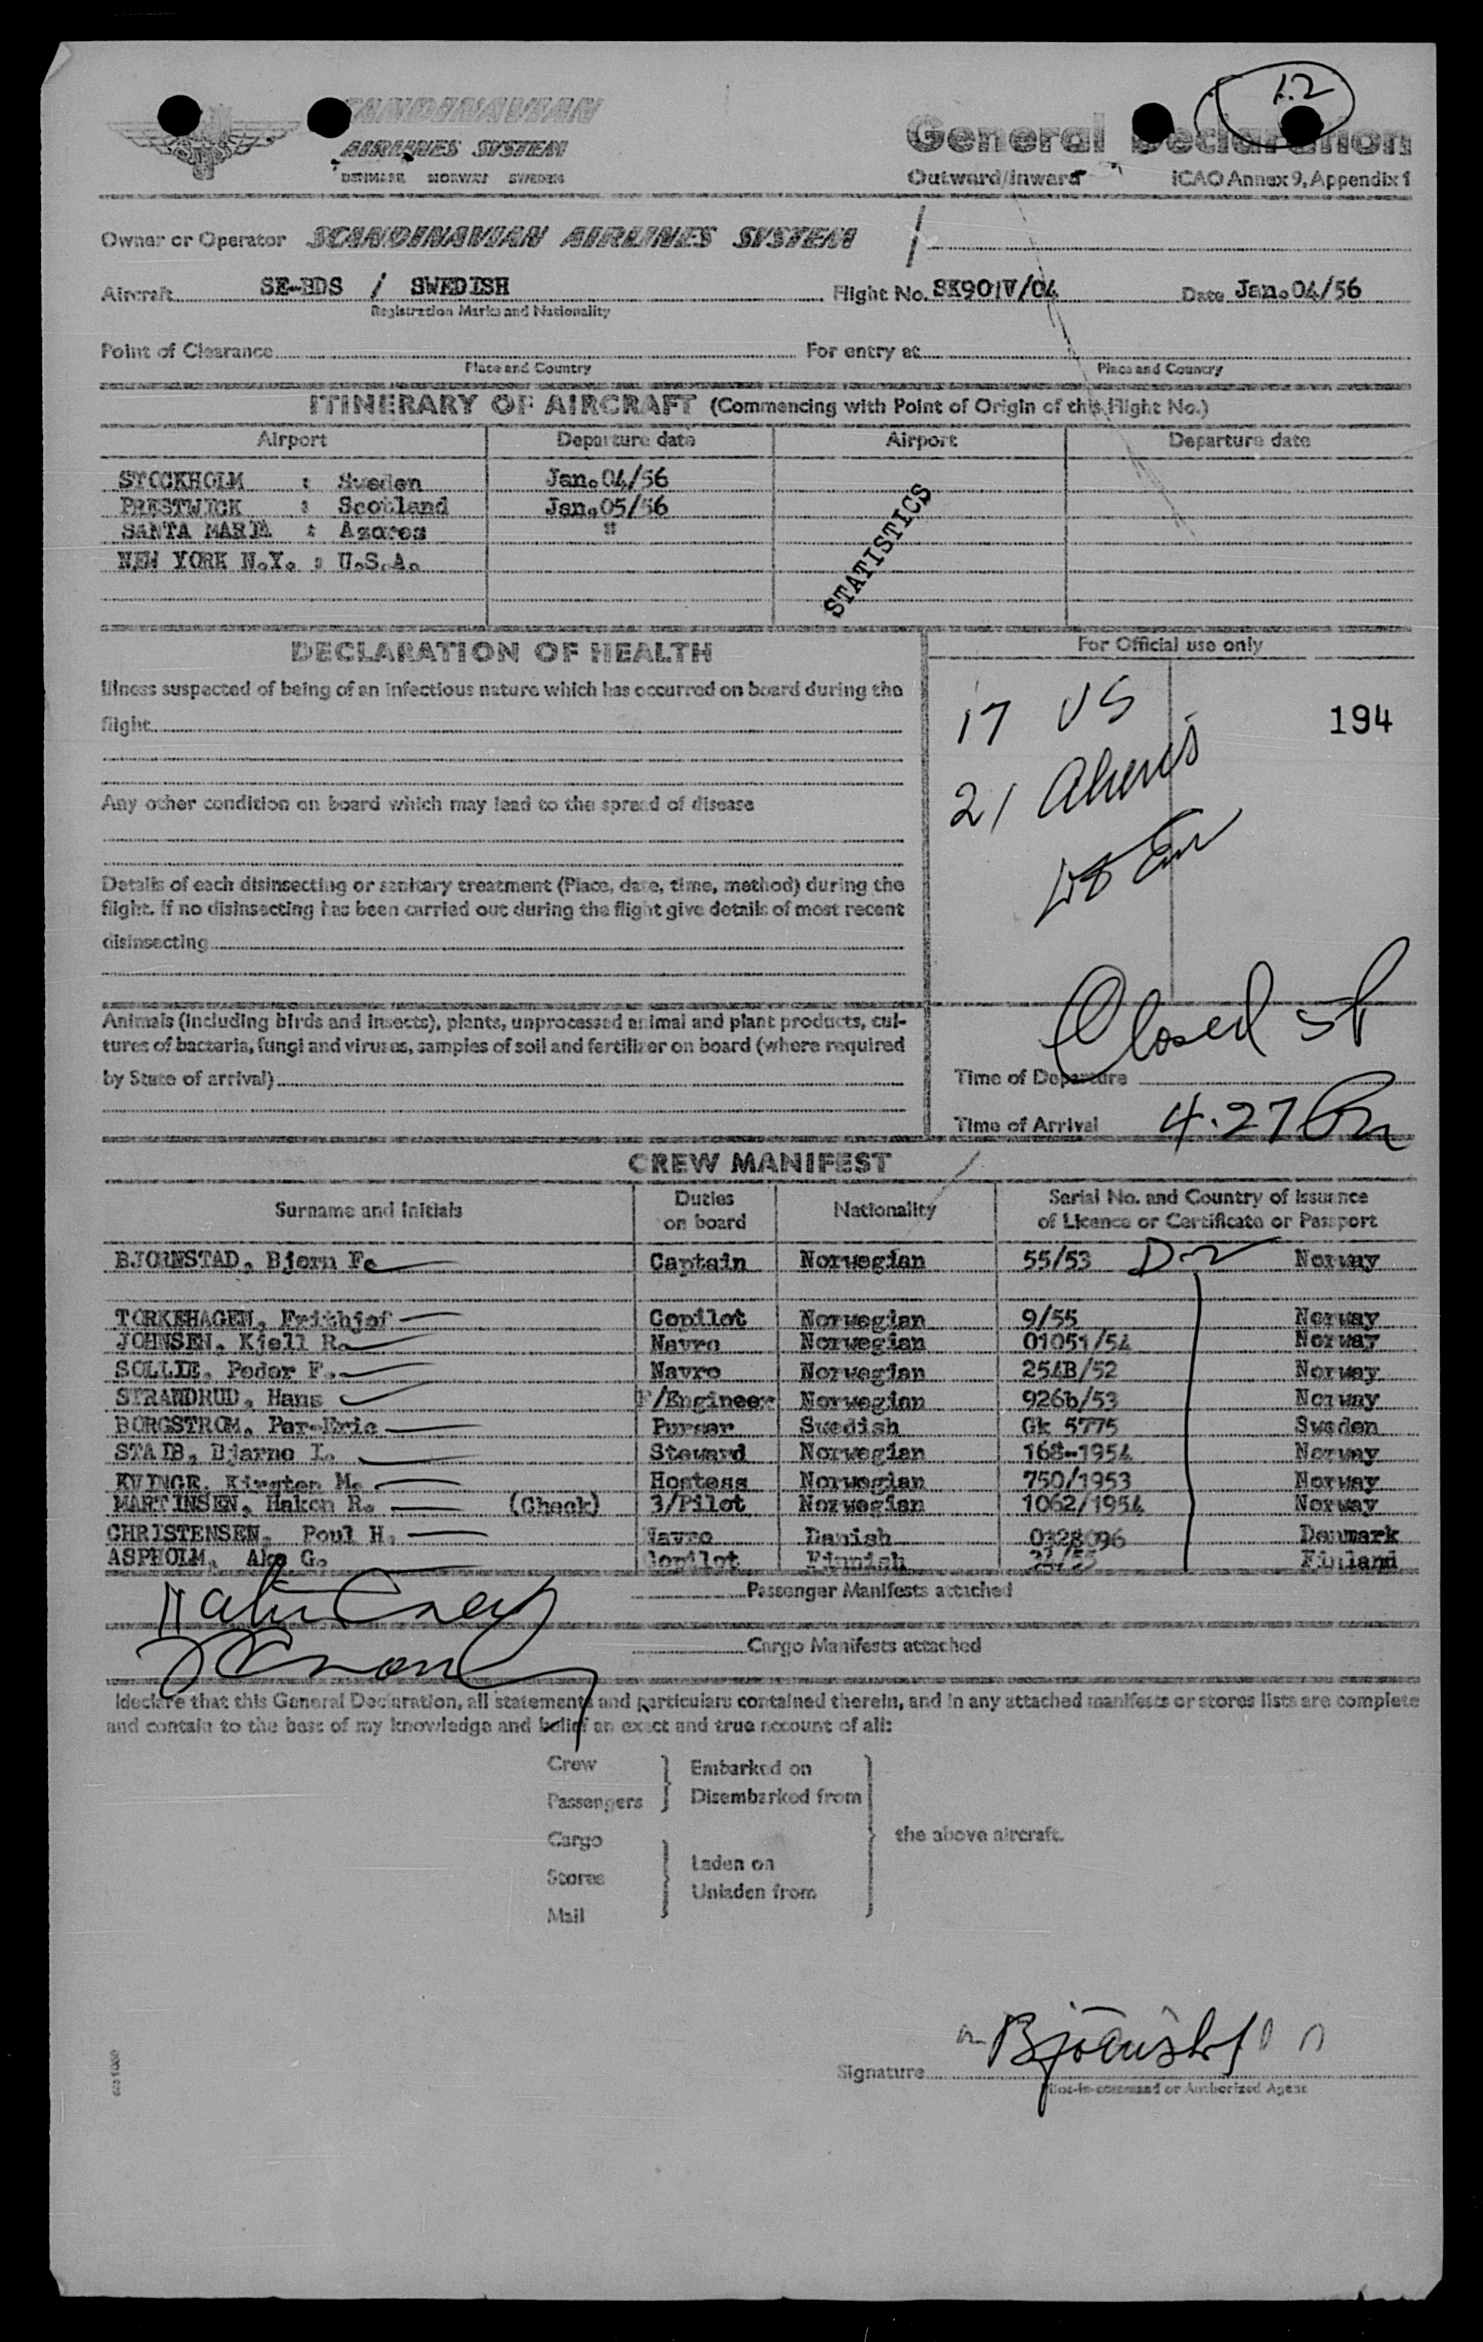 1.2
SCANDINAVIAN
AIRLINES SYSTEM
DENMARK NORWAY SWEDEN
General Declaration
Outward/Inward ICAO Annex 9, Appendix 1
Owner or Operator SCANDINAVIAN AIRLINES SYSTEM
Aircraft SE-BDS / SWEDISH Flight No. SK901V/04 Date Jan.04/56
Registration Marks and Nationality
Point of Clearance For entry at
Place and Country Place and Country
ITINERARY OF AIRCRAFT (Commencing with Point of Origin of this Flight No.)
Airport Departure date Airport Departure date
STOCKHOLM : Sweden Jan.04/56
PRESTWICK : Scotland Jan.05/56
SANTA MARIA : Azores "
NEW YORK N.Y. : U.S.A.
STATISTICS
DECLARATION OF HEALTH
For Official use only
Illness suspected of being of an infectious nature which has occurred on board during the
flight
17 US
194
21 Aliens
Any other condition on board which may lead to the spread of disease
Details of each disinsecting or sanitary treatment (Place, date, time, method) during the
flight. If no disinsecting has been carried out during the flight give details of most recent
disinsecting
Animals (including birds and insects), plants, unprocessed animal and plant products, cul-
tures of bacteria, fungi and viruses, samples of soil and fertilizer on board (where required
by State of arrival)
Closed
Time of Departure
Time of Arrival 4.27 Pm
CREW MANIFEST
Surname and Initials Duties on board Nationality Serial No. and Country of Issuance of Licence or Certificate or Passport
BJORNSTAD, Bjorn F. Captain Norwegian 55/53 D-2 Norway
TORKEHAGEN, Frithjof Copilot Norwegian 9/55 Norway
JOHNSEN, Kjell R. Navro Norwegian 01051/54 Norway
SOLLIE, Peder F. Navro Norwegian 254B/52 Norway
STRANDRUD, Hans F/Engineer Norwegian 926b/53 Norway
BORGSTROM, Per-Eric Purser Swedish Gk 5775 Sweden
STAIB, Bjarne I. Steward Norwegian 168-1954 Norway
KVINGE, Kirsten M. Hostess Norwegian 750/1953 Norway
MARTINSEN, Hakon R. (Check) 3/Pilot Norwegian 1062/1954 Norway
CHRISTENSEN, Poul H. Navro Danish 0328096 Denmark
ASPHOLM, Ake G. Copilot Finnish Finland
Passenger Manifests attached
Cargo Manifests attached
I declare that this General Declaration, all statements and particulars contained therein, and in any attached manifests or stores lists are complete
and contain to the best of my knowledge and belief an exact and true account of all:
Crew
Embarked on
Passengers
Disembarked from
Cargo
the above aircraft.
Stores
Laden on
Unladen from
Mail
Signature Bjørnstad
Pilot-in-command or Authorized Agent